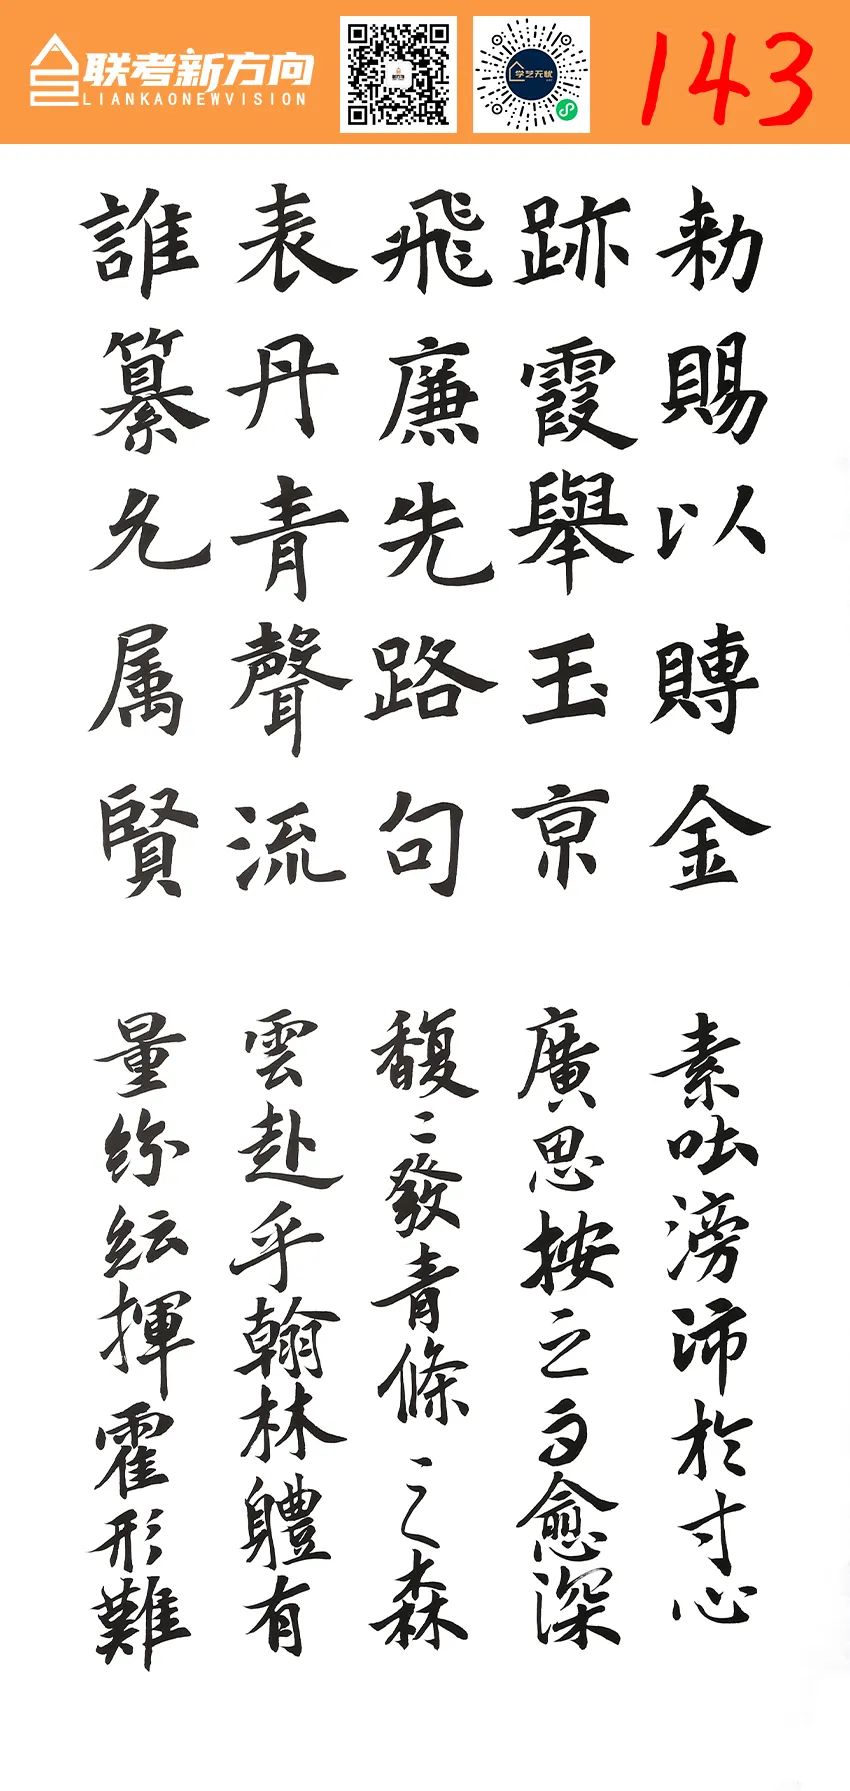 联考新方向
LIANKAONEWVISION
学艺无忧
143
勅賜以賻金
跡霞舉玉京
飛廉先路句
表丹青聲流
誰纂允属賢
素吐滂沛於寸心
廣思按之而愈深
馥〻發青條之森
雲赴乎翰林體有
量紛紜揮霍形難